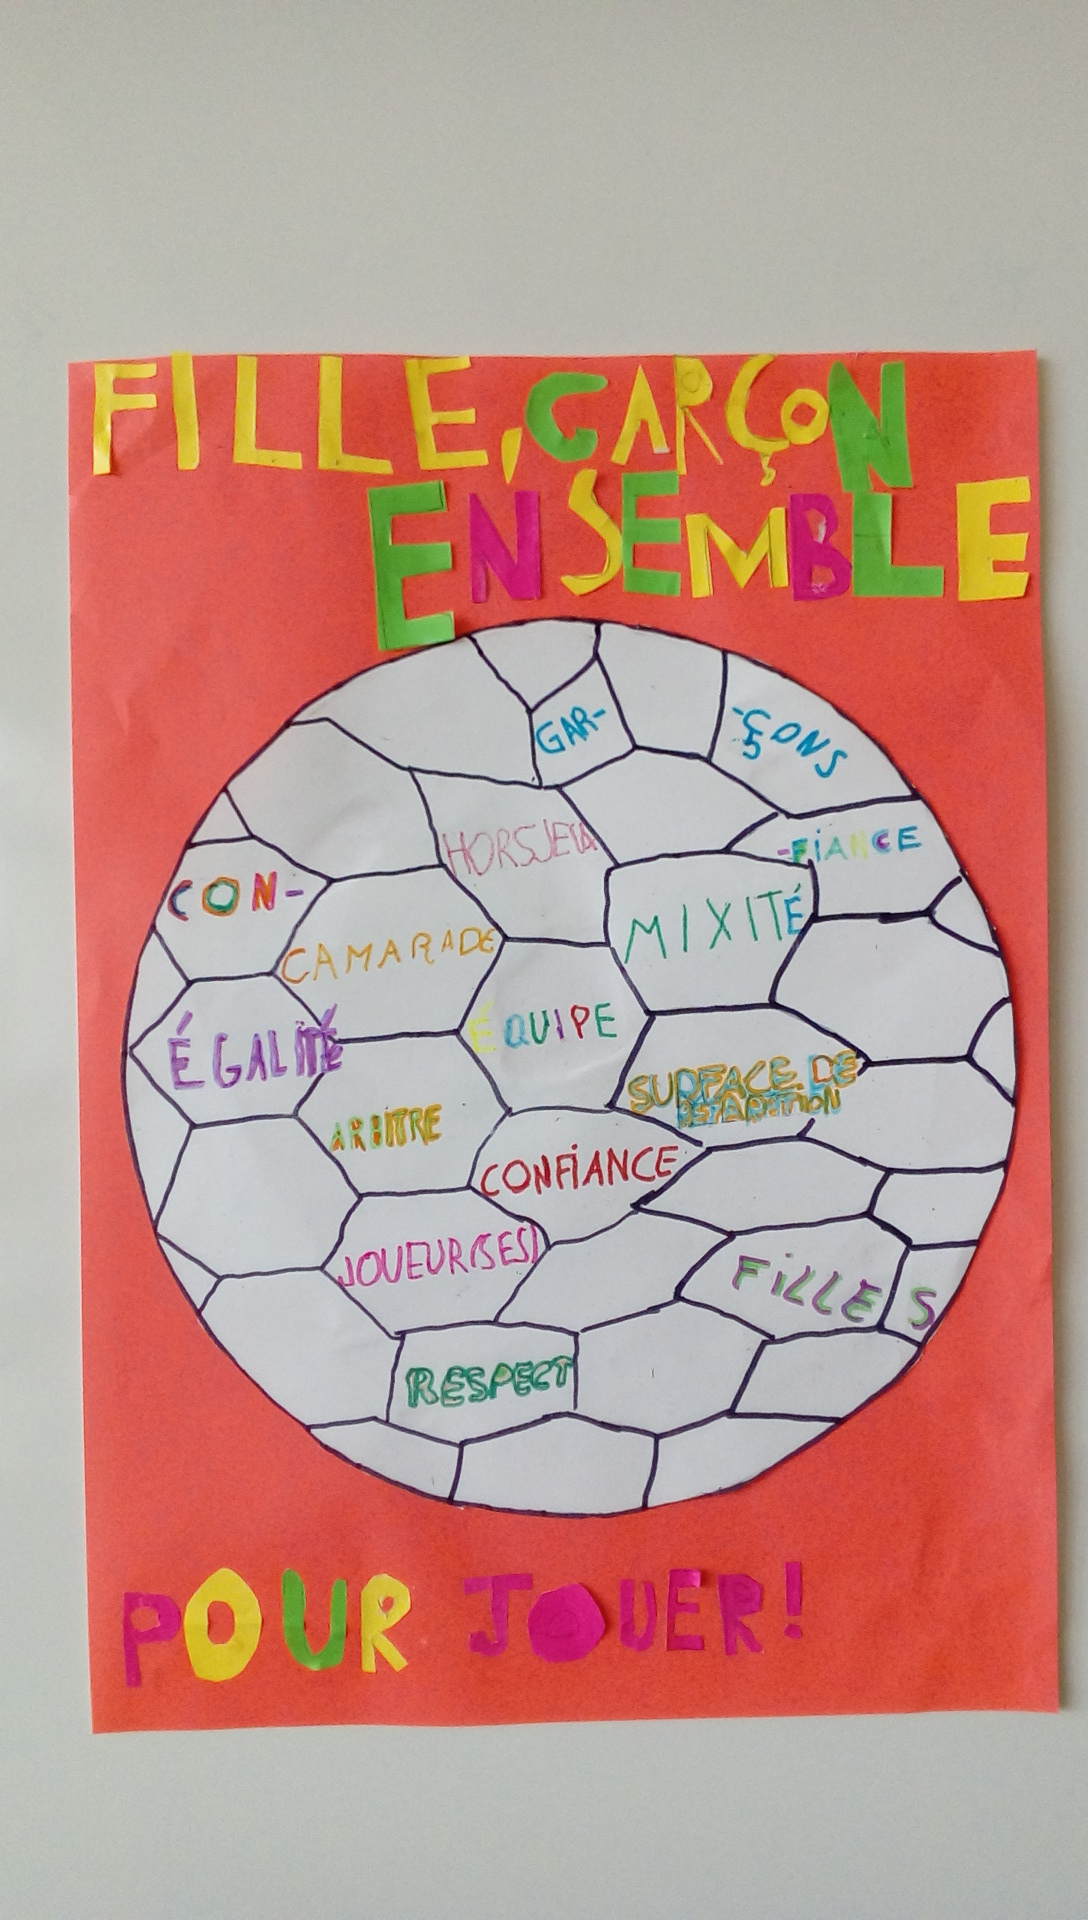 FILLE, GARÇON
ENSEMBLE
GAR-
-ÇONS
HORSJEU
-FiANCE
CON-
CAMARADE
MIXITÉ
ÉGALITÉ
ÉQUIPE
SURFACE DE
ARBITRE
CONFiANCE
JOUEUR(SES)
FiLLES
RESPECT
POUR JOUER!